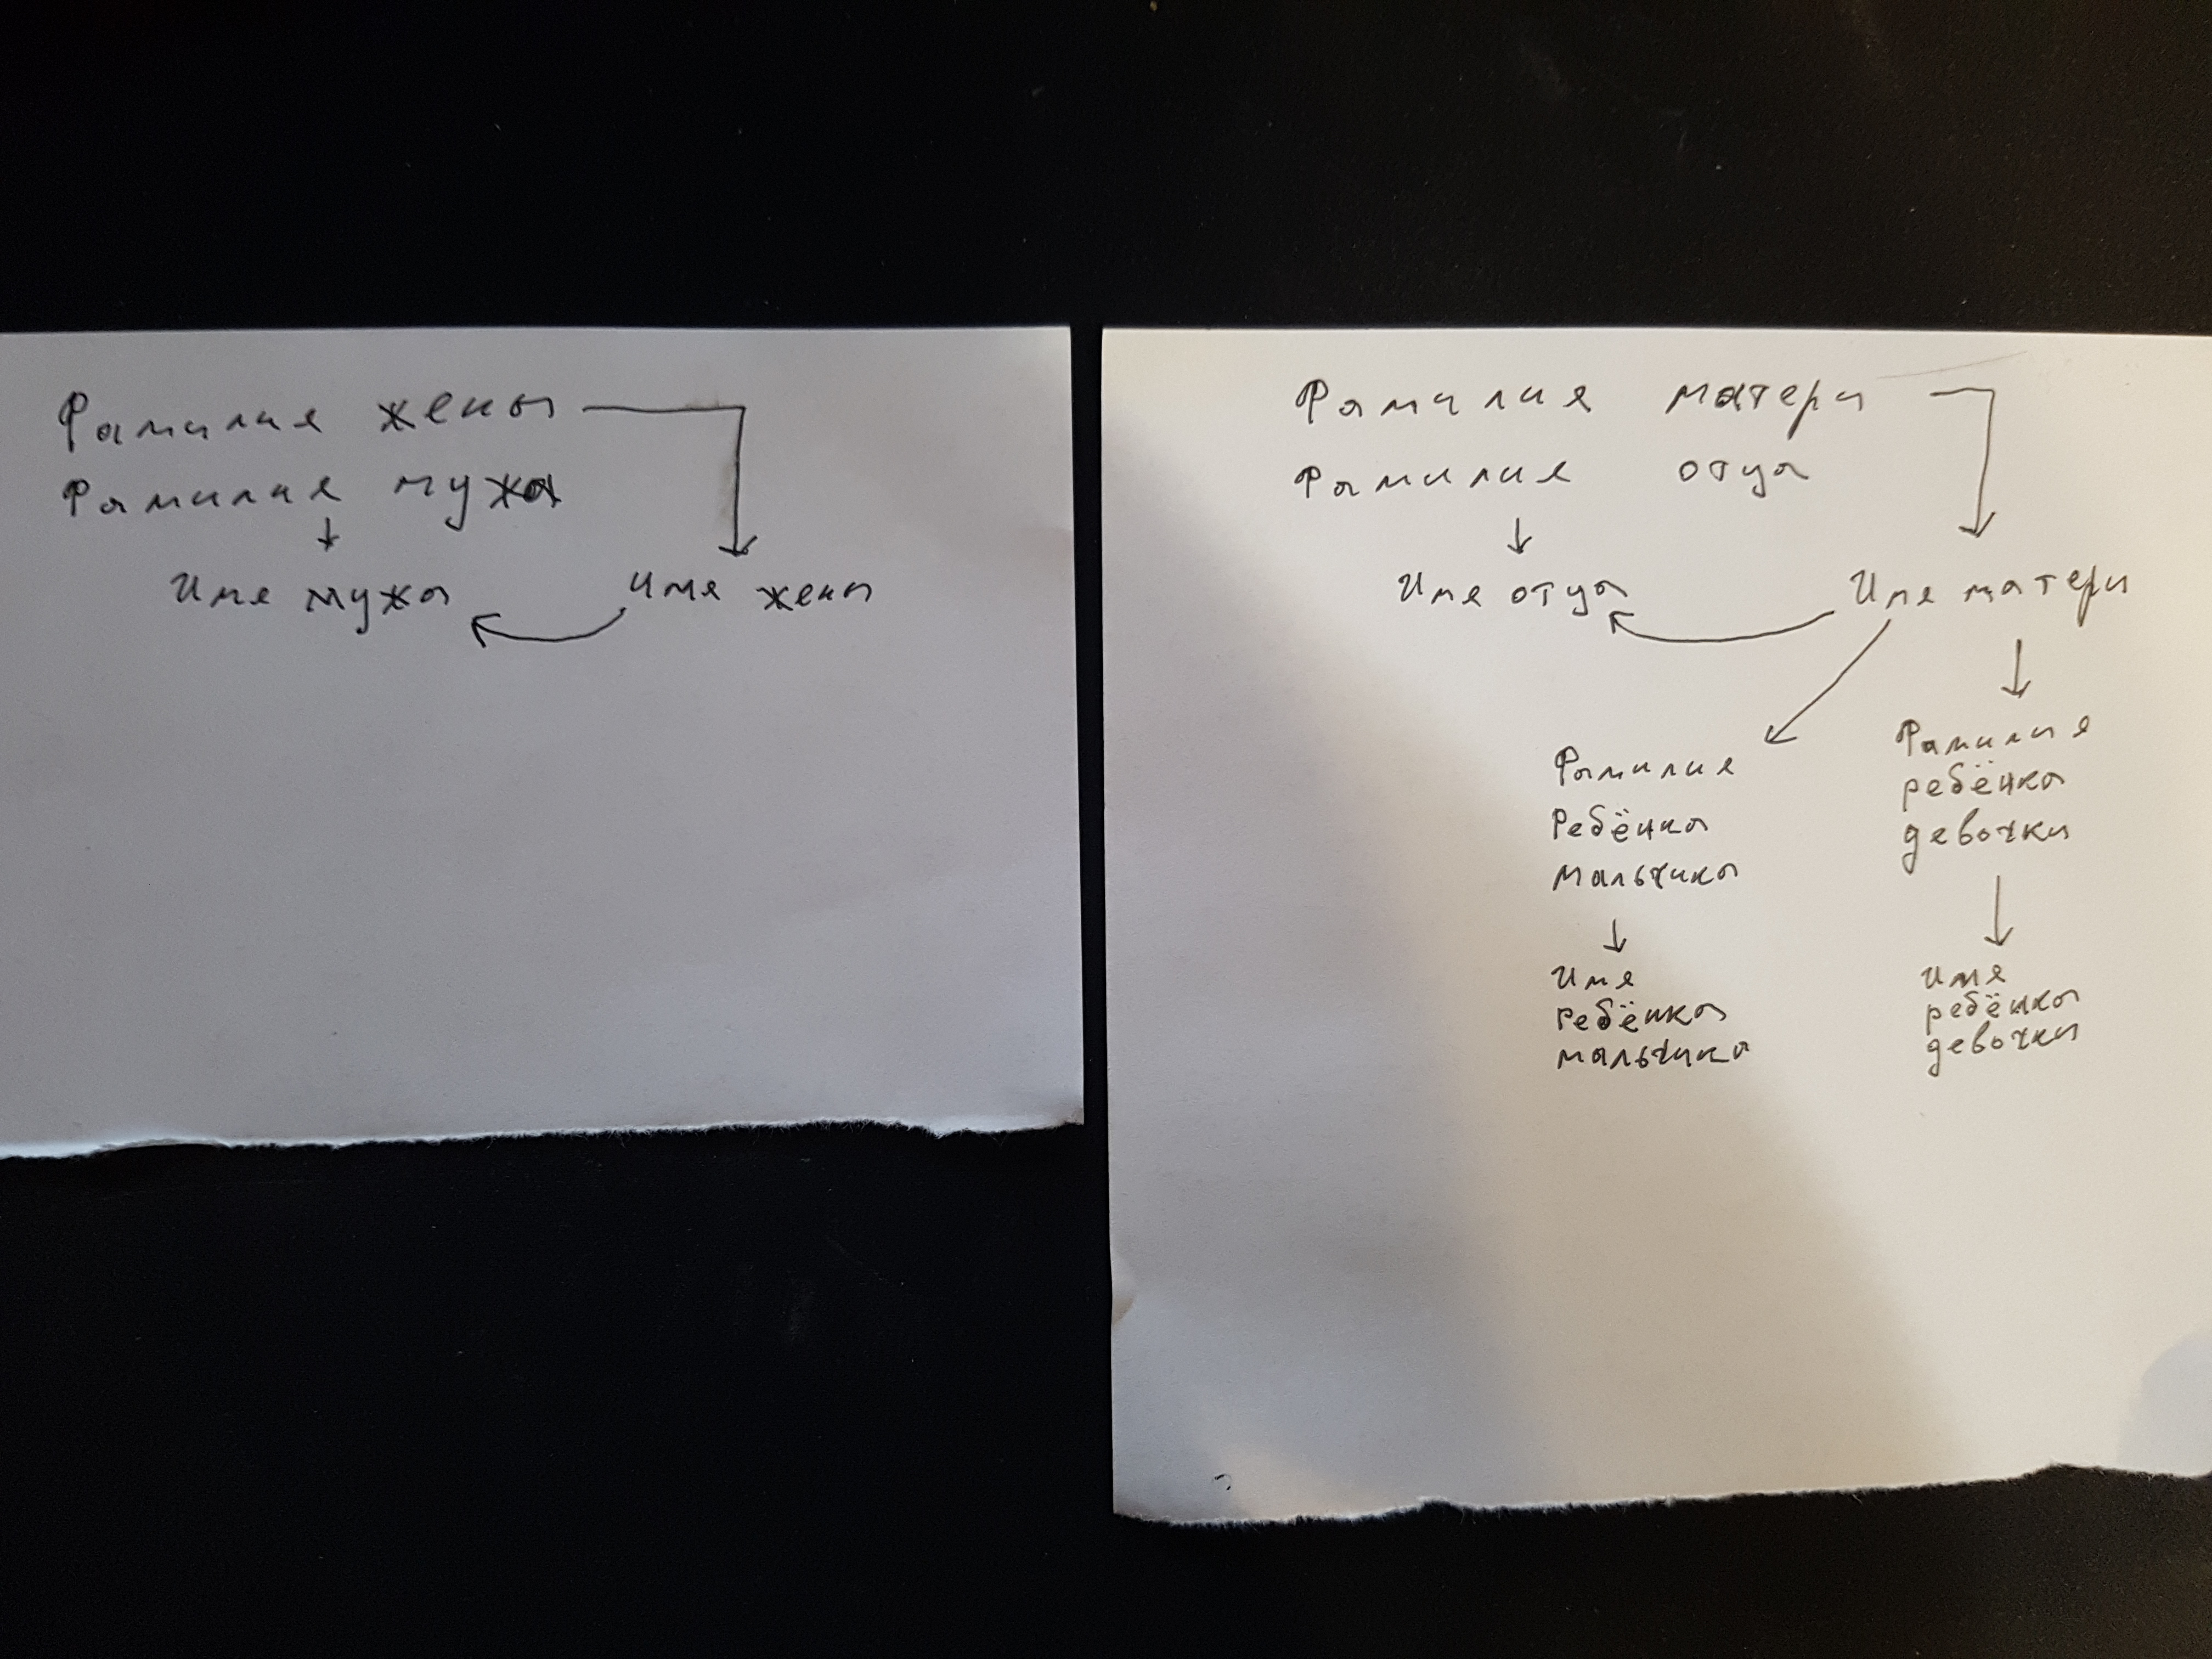 Фамилия жены
Фамилия мужа
Имя мужа
Имя жены
Фамилия матери
Фамилия отца
Имя отца
Имя матери
Фамилия
Ребёнка
мальчика
Имя
ребёнка
мальчика
Фамилия
ребёнка
девочки
Имя
ребёнка
девочки